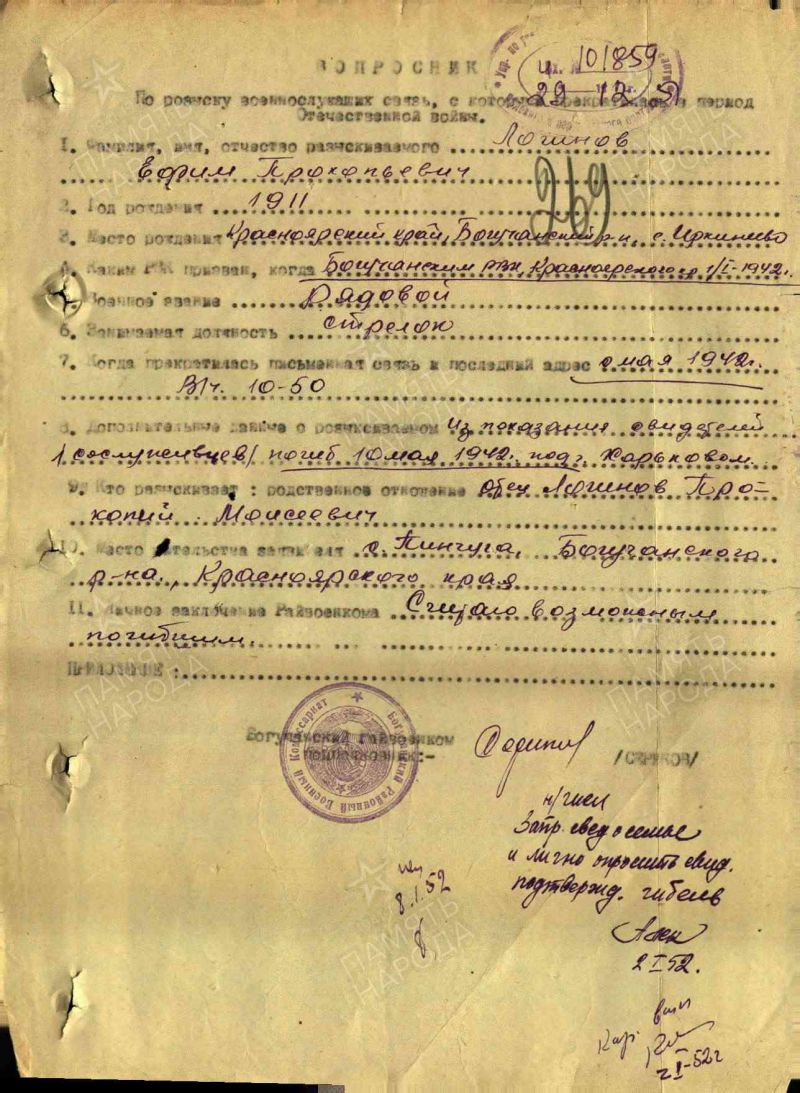 ВОПРОСНИК
вх. № 101859
29 12 51
По розыску военнослужащих связь, с которыми прекратилась в период
Отечественной войны.
1. Фамилия, имя, отчество разыскиваемого Логинов
Ефим Прокопьевич
2. Год рождения 1911
3. Место рождения Красноярский край, Богучанский р-н, с. Иркинеево
4. Каким РВК призван, когда Богучанским РВК, Красноярского кр. 1/I-1942г.
Военное звание рядовой
6. Занимаемая должность стрелок
7. Когда прекратилась письменная связь и последний адрес с мая 1942г.
В/ч. 10-50
8. Дополнительные данные о разыскиваемом Из показания свидетелей
/сослуживцев/ погиб 10 мая 1942г. под г. Харьковом.
9. Кто разыскивает: родственное отношение отец Логинов Про-
копий Моисеевич
10. Место жительства заявителя с. Пинчуга, Богучанского
р-на, Красноярского края
11. Личное заключение Райвоенкома Считаю возможным
погибшим.
ПРИЛОЖЕНИЕ:
Богучанский райвоенком
подполковник:-
/СЕРИКОВ/
Богучанский Районный Военный Комиссариат
Запр. свед о семье
и лично опросить свид.
подтвержд. гибель
2 I 52.
8.I.52
2 I-52г
ПАМЯТЬ
НАРОДА